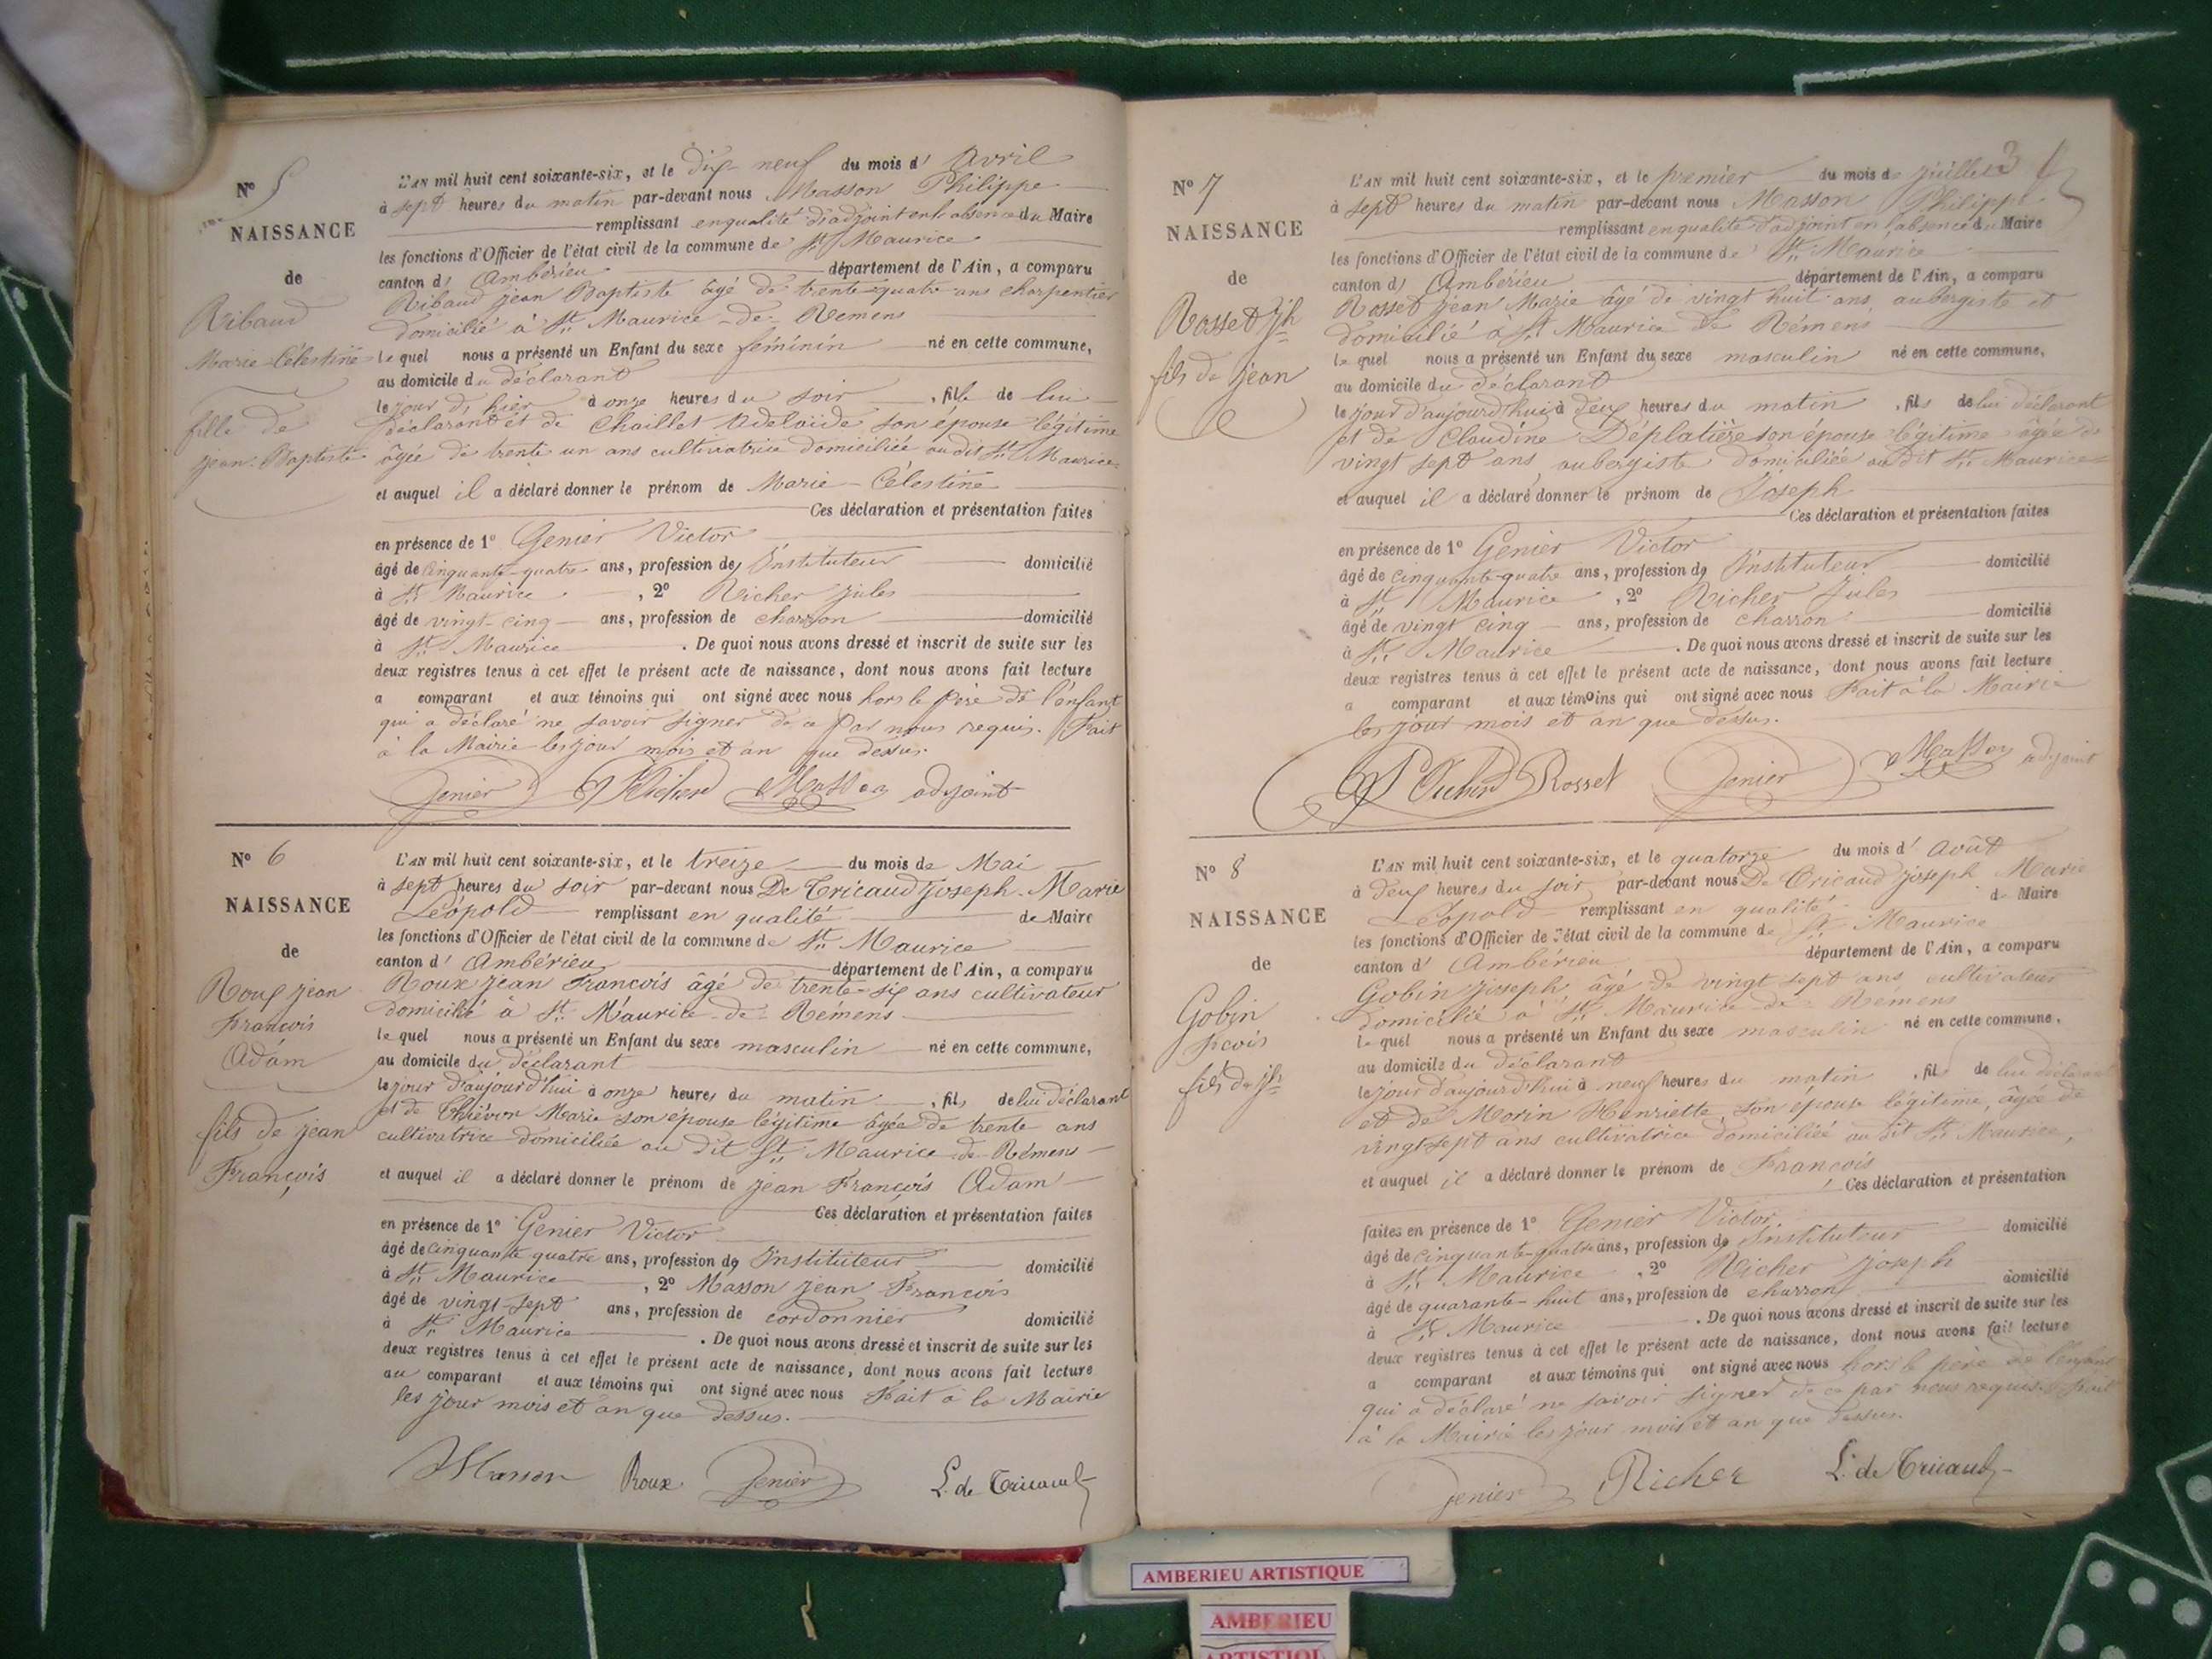 N° 5
NAISSANCE
de
Ribaud
Marie-Célestine
fille de
jean-Baptiste
L'AN mil huit cent soixante-six, et le dix-neuf du mois d' Avril
à sept heures du matin par-devant nous Masson Philippe
remplissant en qualité d'adjoint en l'absence du Maire
les fonctions d'Officier de l'état civil de la commune de St Maurice
canton d' Ambérieu département de l'Ain, a comparu
Ribaud jean Baptiste âgé de trente-quatre ans charpentier
domicilié à St Maurice-de-Remens
le quel nous a présenté un Enfant du sexe féminin né en cette commune,
au domicile du déclarant
le jour d'hier à onze heures du soir, fille de lui
déclarant et de Chaillet Adelaïde son épouse légitime
âgée de trente un ans cultivatrice domiciliée au dit St Maurice
et auquel il a déclaré donner le prénom de Marie-Célestine
Ces déclaration et présentation faites
en présence de 1° Genier Victor
âgé de cinquante-quatre ans, profession de Instituteur domicilié
à St Maurice, 2° Richer jules
âgé de vingt-cinq ans, profession de charron domicilié
à St Maurice. De quoi nous avons dressé et inscrit de suite sur les
deux registres tenus à cet effet le présent acte de naissance, dont nous avons fait lecture
a comparant et aux témoins qui ont signé avec nous hors le père de l'enfant
qui a déclaré ne savoir signer de ce par nous requis. Fait
à la Mairie les jour mois et an que dessus.
Genier Richer Masson adjoint
N° 6
NAISSANCE
de
Roux jean
François
Adam
fils de jean
François
L'AN mil huit cent soixante-six, et le treize du mois de Mai
à sept heures du soir par-devant nous De Tricaud joseph-Marie
Léopold remplissant en qualité de Maire
les fonctions d'Officier de l'état civil de la commune de St Maurice
canton d' Ambérieu département de l'Ain, a comparu
Roux jean François âgé de trente-six ans cultivateur
domicilié à St Maurice-de-Rémens
le quel nous a présenté un Enfant du sexe masculin né en cette commune,
au domicile du déclarant
le jour d'aujourd'hui à onze heures du matin, fils de lui déclarant
et de Thiévon Marie son épouse légitime âgée de trente ans
cultivatrice domiciliée au dit St Maurice de Rémens
et auquel il a déclaré donner le prénom de jean François Adam
Ces déclaration et présentation faites
en présence de 1° Genier Victor
âgé de cinquante quatre ans, profession de Instituteur domicilié
à St Maurice, 2° Masson jean François
âgé de vingt-sept ans, profession de cordonnier domicilié
à St Maurice. De quoi nous avons dressé et inscrit de suite sur les
deux registres tenus à cet effet le présent acte de naissance, dont nous avons fait lecture
au comparant et aux témoins qui ont signé avec nous Fait à la Mairie
les jour mois et an que dessus.
Masson Roux Genier L. de Tricaud
3
N° 7
NAISSANCE
de
Rosset Jh
fils de jean
L'AN mil huit cent soixante-six, et le premier du mois de juillet
à sept heures du matin par-devant nous Masson Philippe
remplissant en qualité d'adjoint en l'absence du Maire
les fonctions d'Officier de l'état civil de la commune de St Maurice
canton d' Ambérieu département de l'Ain, a comparu
Rosset jean Marie âgé de vingt huit ans aubergiste et
domicilié à St Maurice de Rémens
le quel nous a présenté un Enfant du sexe masculin né en cette commune,
au domicile du déclarant
le jour d'aujourd'hui à deux heures du matin, fils de lui déclarant
et de Claudine Déplatière son épouse légitime âgée de
vingt sept ans aubergiste domiciliée au dit St Maurice
et auquel il a déclaré donner le prénom de Joseph
Ces déclaration et présentation faites
en présence de 1° Genier Victor
âgé de cinquante-quatre ans, profession de Instituteur domicilié
à St Maurice, 2° Richer Jules
âgé de vingt cinq ans, profession de charron domicilié
à St Maurice. De quoi nous avons dressé et inscrit de suite sur les
deux registres tenus à cet effet le présent acte de naissance, dont nous avons fait lecture
a comparant et aux témoins qui ont signé avec nous Fait à la Mairie
les jour mois et an que dessus.
Richer Rosset Genier Masson adjoint
N° 8
NAISSANCE
de
Gobin
fcois
fils de jh
L'AN mil huit cent soixante-six, et le quatorze du mois d' Août
à deux heures du soir par-devant nous De Tricaud joseph Marie
Léopold remplissant en qualité de Maire
les fonctions d'Officier de l'état civil de la commune de St Maurice
canton d' Ambérieu département de l'Ain, a comparu
Gobin joseph âgé de vingt sept ans cultivateur
domicilié à St Maurice de Rémens
le quel nous a présenté un Enfant du sexe masculin né en cette commune,
au domicile du déclarant
le jour d'aujourd'hui à neuf heures du matin, fils de lui déclarant
et de Morin Henriette son épouse légitime, âgée de
vingt-sept ans cultivatrice domiciliée au dit St Maurice,
et auquel il a déclaré donner le prénom de François
Ces déclaration et présentation
faites en présence de 1° Genier Victor,
âgé de cinquante-quatre ans, profession de Instituteur domicilié
à St Maurice, 2° Richer joseph
âgé de quarante-huit ans, profession de charron domicilié
à St Maurice. De quoi nous avons dressé et inscrit de suite sur les
deux registres tenus à cet effet le présent acte de naissance, dont nous avons fait lecture
a comparant et aux témoins qui ont signé avec nous hors le père de l'enfant
qui a déclaré ne savoir signer de ce par nous requis. Fait
à la Mairie les jour mois et an que dessus.
Genier Richer L. de Tricaud
AMBERIEU ARTISTIQUE
AMBERIEU
ARTISTIQU